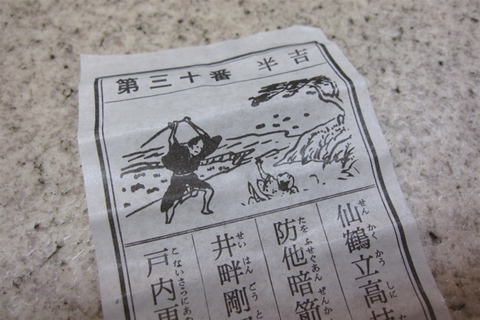 第三十番 半吉
せんかくかうしに
仙鶴立高枝
たをふせぐあんせんか
防他暗箭
せいはんごうと
井畔剛
こないさらにあ
戸内更